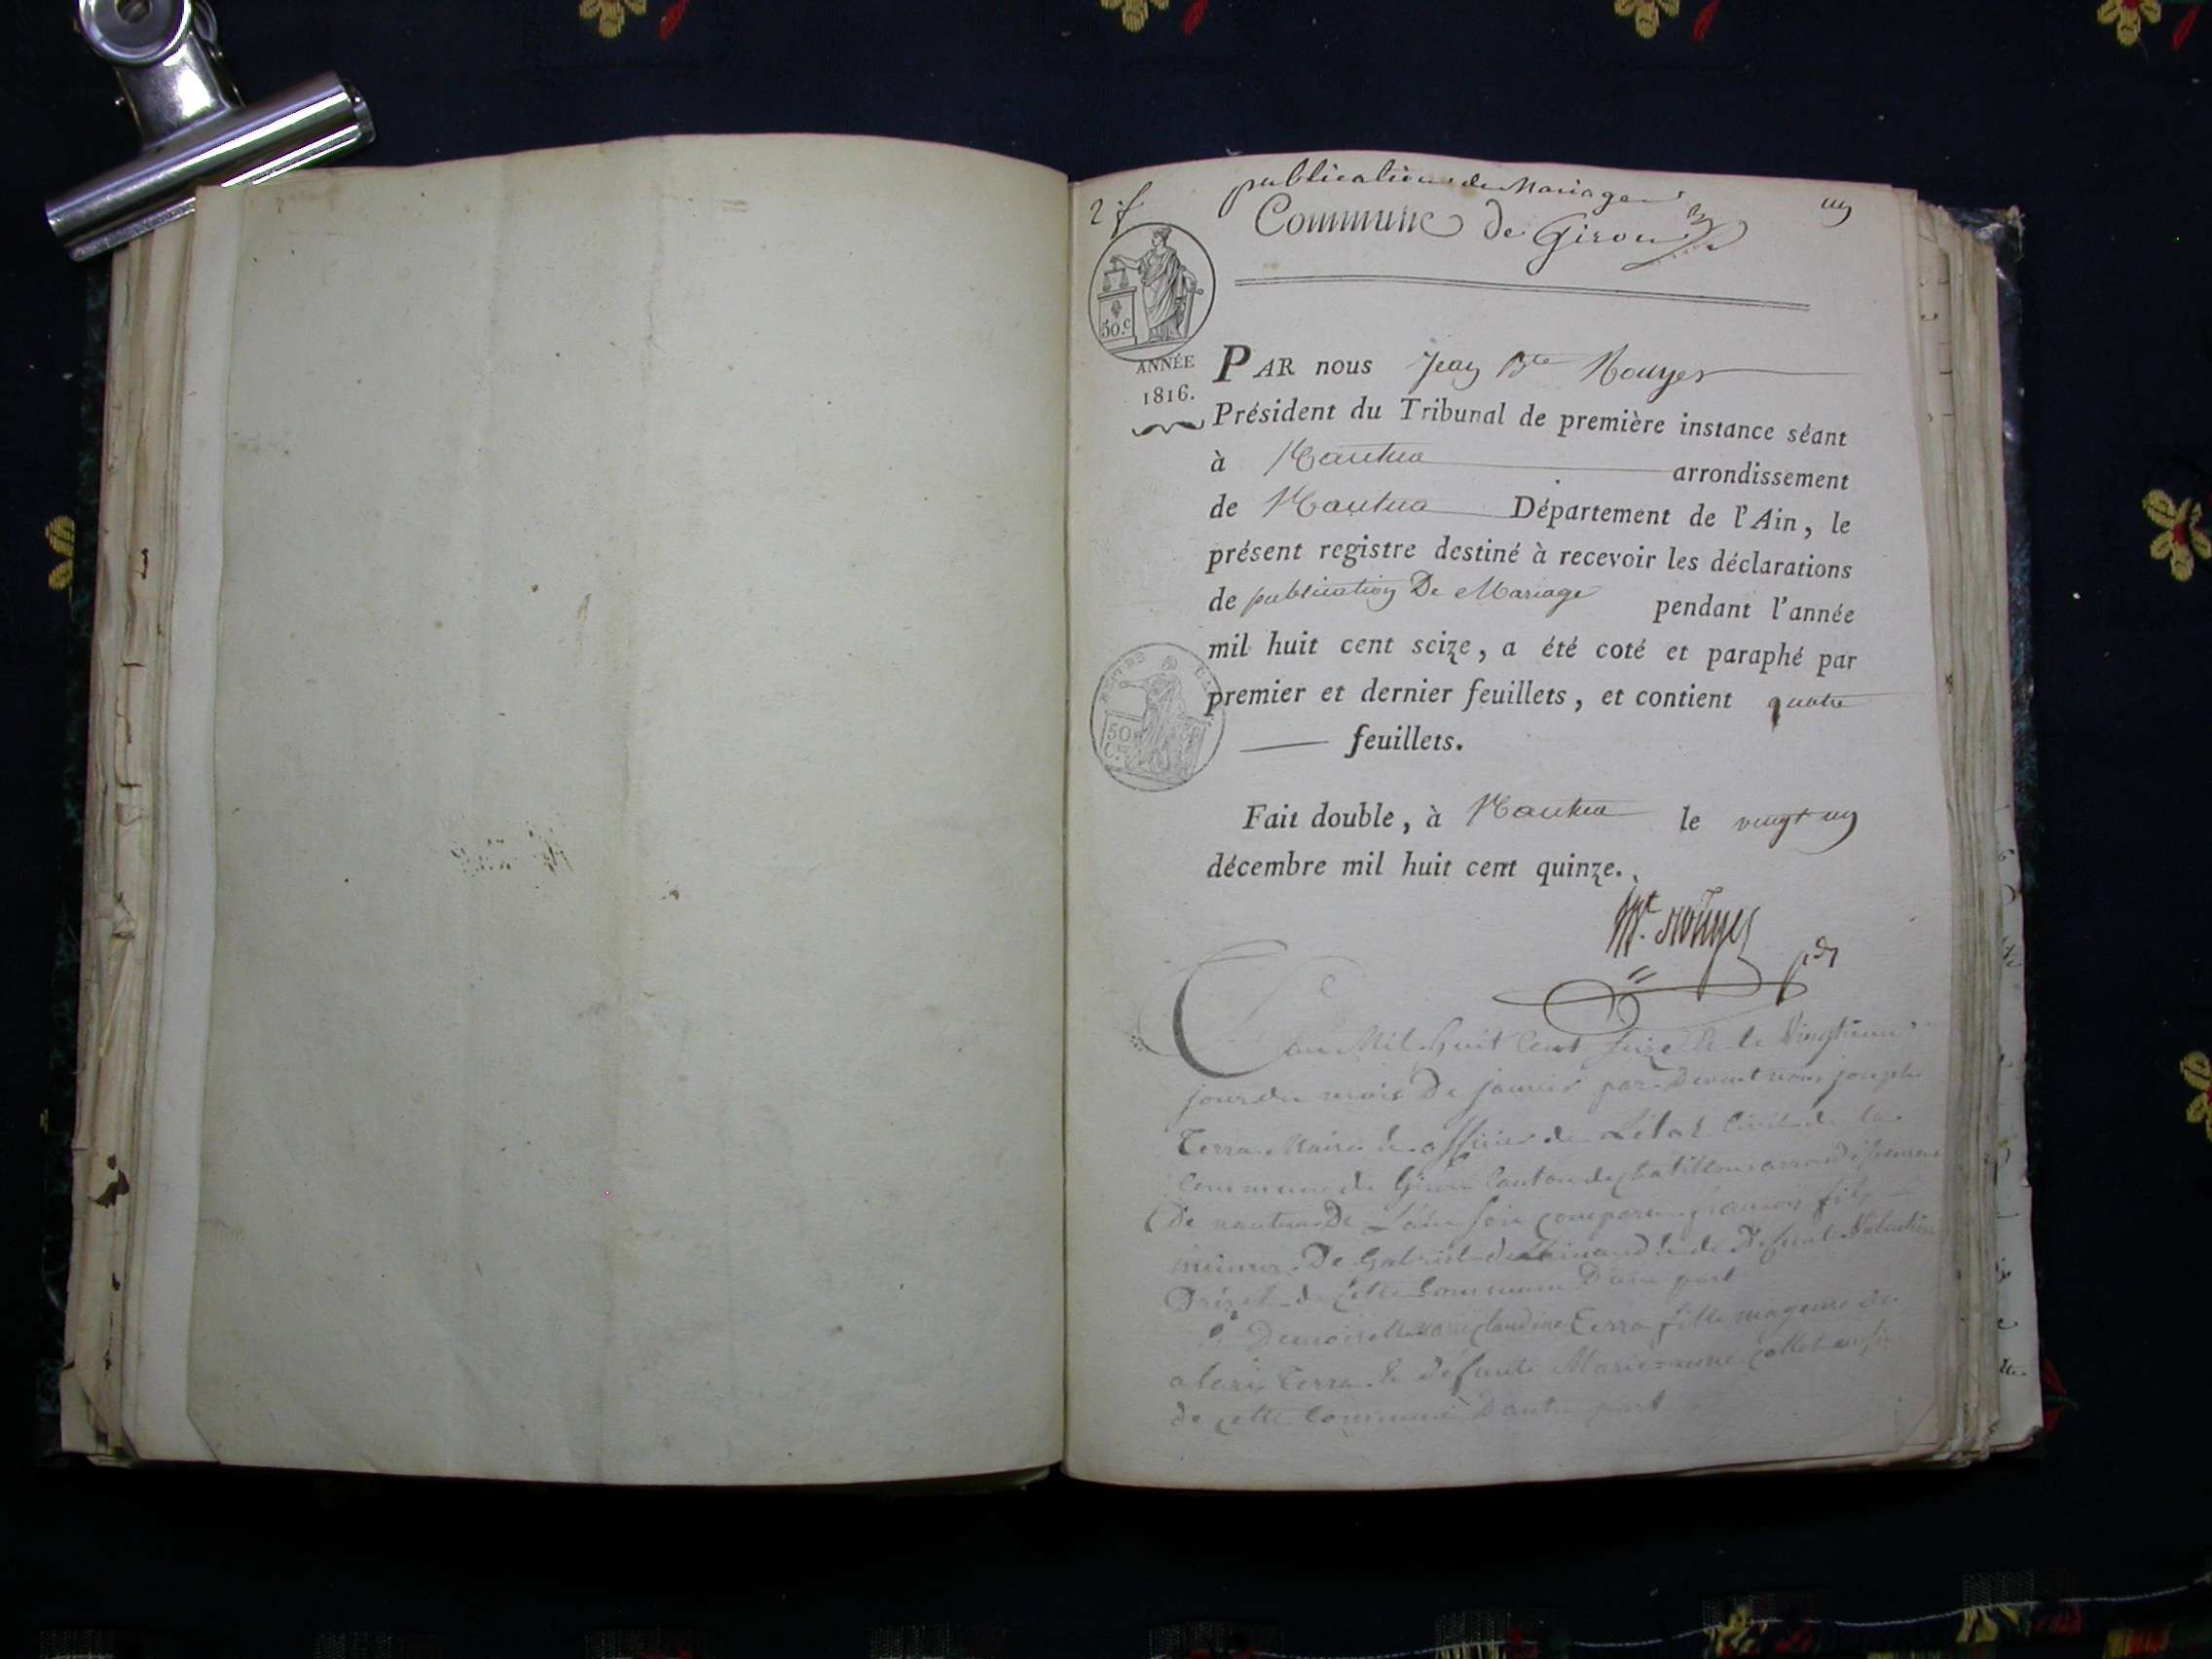 2 f
publication de Mariage
un
Commune de Giron
50.c
ANNÉE
1816.
PAR nous Jean Bte Rouyer
Président du Tribunal de première instance séant
à Nantua arrondissement
de Nantua Département de l'Ain, le
présent registre destiné à recevoir les déclarations
de publication De Mariage pendant l'année
mil huit cent seize, a été coté et paraphé par
premier et dernier feuillets, et contient quatre
feuillets.
Fait double, à Nantua le vingt un
décembre mil huit cent quinze.
50
L'an Mil huit Cent Seize & le Vingtieme
jour du mois De janvier par Devant nous joseph
Terra Maire & officier de Létat Civil de la
Commune de Giron Canton de Chatillon arrondissement
De nantua De Lain
mineur De Gabriel & de Defunte
de Cette Commune D'une part
& Demoiselle Marie Claudine Terra fille mageure de
alexis Terra & Défunte Marie=anne
de cette Commune D'autre part